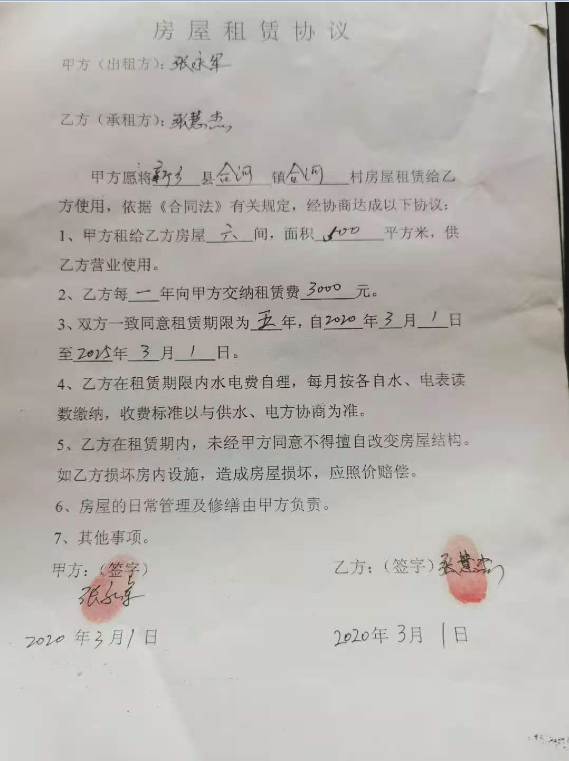 房屋租赁协议
甲方（出租方）：张永军
乙方（承租方）：张慧杰
甲方愿将新乡县合河镇合河村房屋租赁给乙
方使用，依据《合同法》有关规定，经协商达成以下协议：
1、甲方租给乙方房屋六间，面积600平方米，供
乙方营业使用。
2、乙方每一年向甲方交纳租赁费3000元。
3、双方一致同意租赁期限为五年，自2020年3月1日
至2025年3月1日。
4、乙方在租赁期限内水电费自理，每月按各自水、电表读
数缴纳，收费标准以与供水、电方协商为准。
5、乙方在租赁期内，未经甲方同意不得擅自改变房屋结构。
如乙方损坏房内设施，造成房屋损坏，应照价赔偿。
6、房屋的日常管理及修缮由甲方负责。
7、其他事项。
甲方：（签字） 乙方：（签字）张慧杰
张永军
2020年3月1日 2020年3月1日